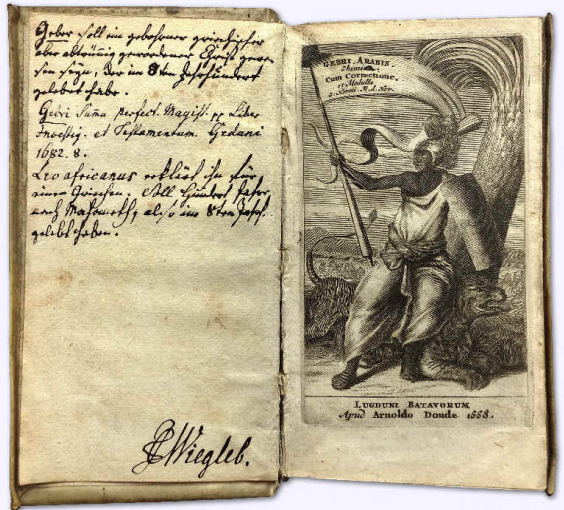 Geber soll ein gebohrner griechischer
aber abtrünnig gewordener Christ gewe-
sen seyn, der im 8ten Jahrhundert
gelebt habe.
Gebri Suma perfect. Magist. pp Liber
Investig. et Testamentum. Gedani
1682. 8.
Leo africanus erklärt ihn für
einen Griechen. All hundert Jahr
nach Mahometh, also im 8ten Jahrh.
gelebt haben.
JCWiegleb.
GEBRI, ARABIS,
Chimia.
Cum Correctione,
et Medulla
G. Hornii. M.D.
LUGDUNI BATAVORUM
Apud Arnoldo Doude 1668.